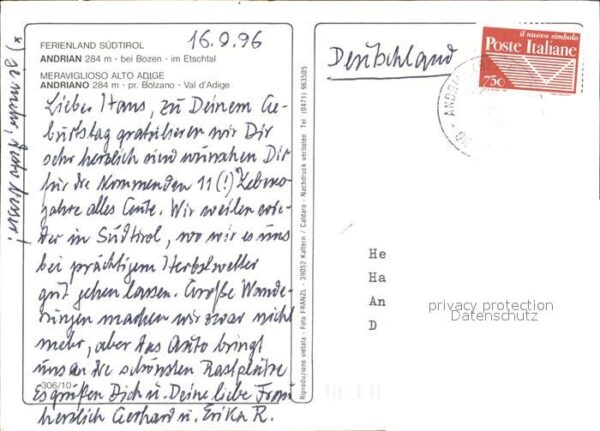 FERIENLAND SÜDTIROL
ANDRIAN 284 m - bei Bozen - im Etschtal
MERAVIGLIOSO ALTO ADIGE
ANDRIANO 284 m - pr. Bolzano - Val d'Adige
16.9.96
Lieber Hans, zu Deinem Ge-
burtstag gratulieren wir Dir
sehr herzlich und wünschen Dir
für die kommenden 11 (!) Lebens-
jahre alles Gute. Wir weilen wie-
der in Südtirol, wo wir es uns
bei prächtigem Herbstwetter
gut gehen lassen. Große Wande-
rungen machen wir zwar nicht
mehr, aber das Auto bringt
uns an die schönsten Rastplätze
Es grüßen Dich u. Deine liebe Frau
herzlich Gerhard u. Erika R.
*) je mehr,
306/10
Riproduzione vietata - Foto FRANZL - 39052 Kaltern / Caldaro - Nachdruck verboten Tel. (0471) 963505
Deutschland
il nuovo simbolo
Poste Italiane
750
He
Ha
An
D
privacy protection
Datenschutz